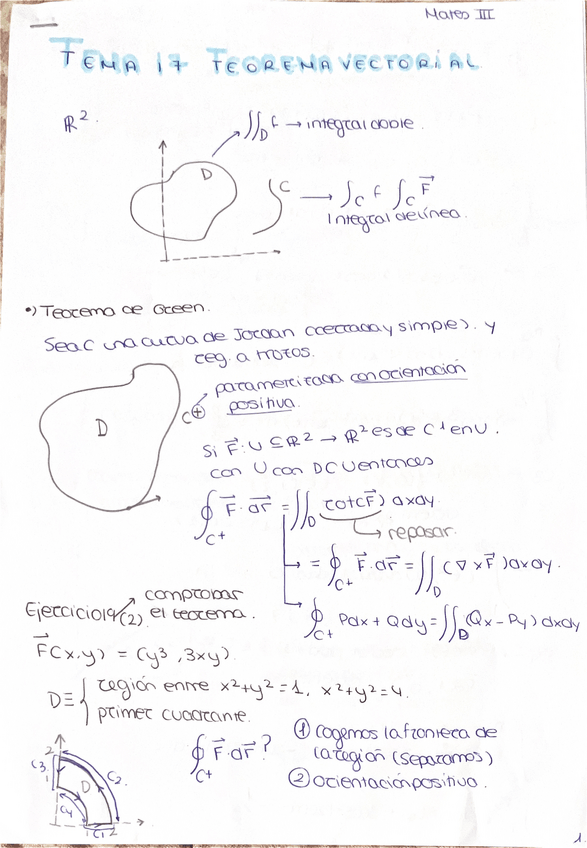 Mates III
TEMA 17 TEOREMA VECTORIAL
ℝ².
∬_D f → integral doble.
D
C → ∫_C f ∫_C F⃗
Integral de línea.
•) Teorema de Green.
Sea C una curva de Jordan (cerrada y simple). y
reg. a trozos.
parametrizada con orientación
positiva.
C⊕
D
Si F⃗: U ⊆ ℝ² → ℝ² es de C¹ en U.
con U con D ⊂ U entonces
∮_{C+} F⃗ · dr⃗ = ∬_D rot(F⃗) dxdy
repasar.
= ∮_{C+} F⃗ · dr⃗ = ∬_D (∇ × F⃗) dxdy.
∮_{C+} Pdx + Qdy = ∬_D (Qx - Py) dxdy
comprobar
Ejercicio 14(2) el teorema.
F⃗(x,y) = (y³, 3xy)
D ≡ { región entre x²+y²=1, x²+y²=4.
primer cuadrante.
∮_{C+} F⃗ · dr⃗ ?
① Cogemos la frontera de
la región (separamos)
② Orientación positiva.
2
C3
1
D
C2
C4
1 C1 2
1